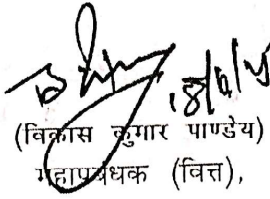 18/6/25
(विकास कुमार पाण्डेय)
महाप्रबंधक (वित्त),